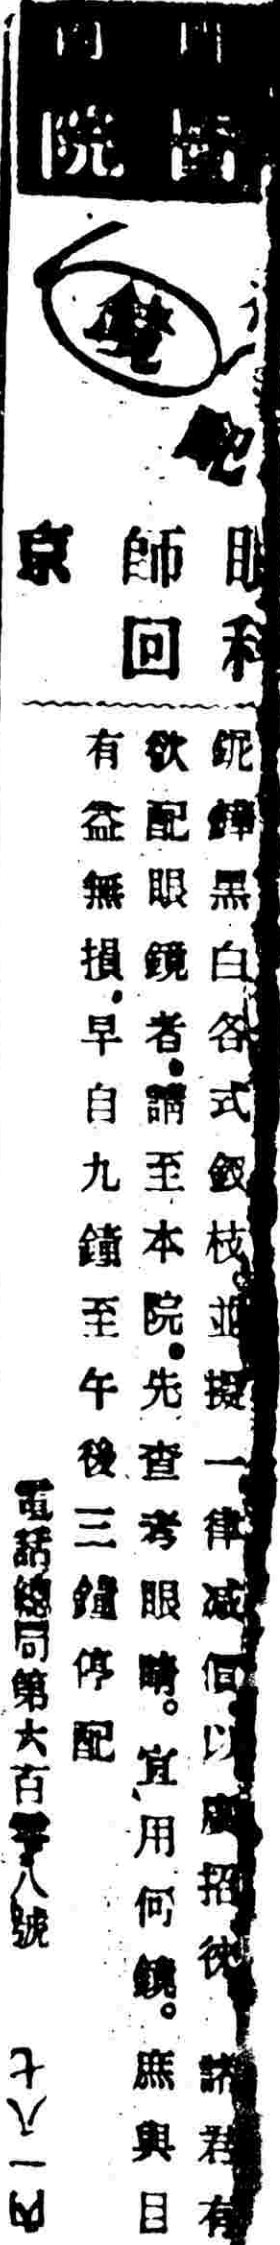 院
眼科
師回
京
鈮鏵黑白各式鈫枝並擬一律減価以廣招徠諸君有
欲配眼鏡者請至本院先查考眼睛。宜用何鏡。庶與目
有益無損早自九鐘至午後三鐘停配
電話總局第六百 八號
內一八七